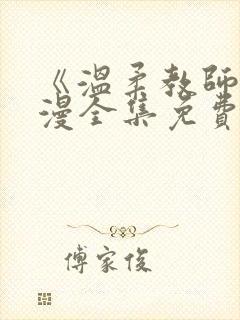 《溫柔教師
漫全集免費
傅家俊